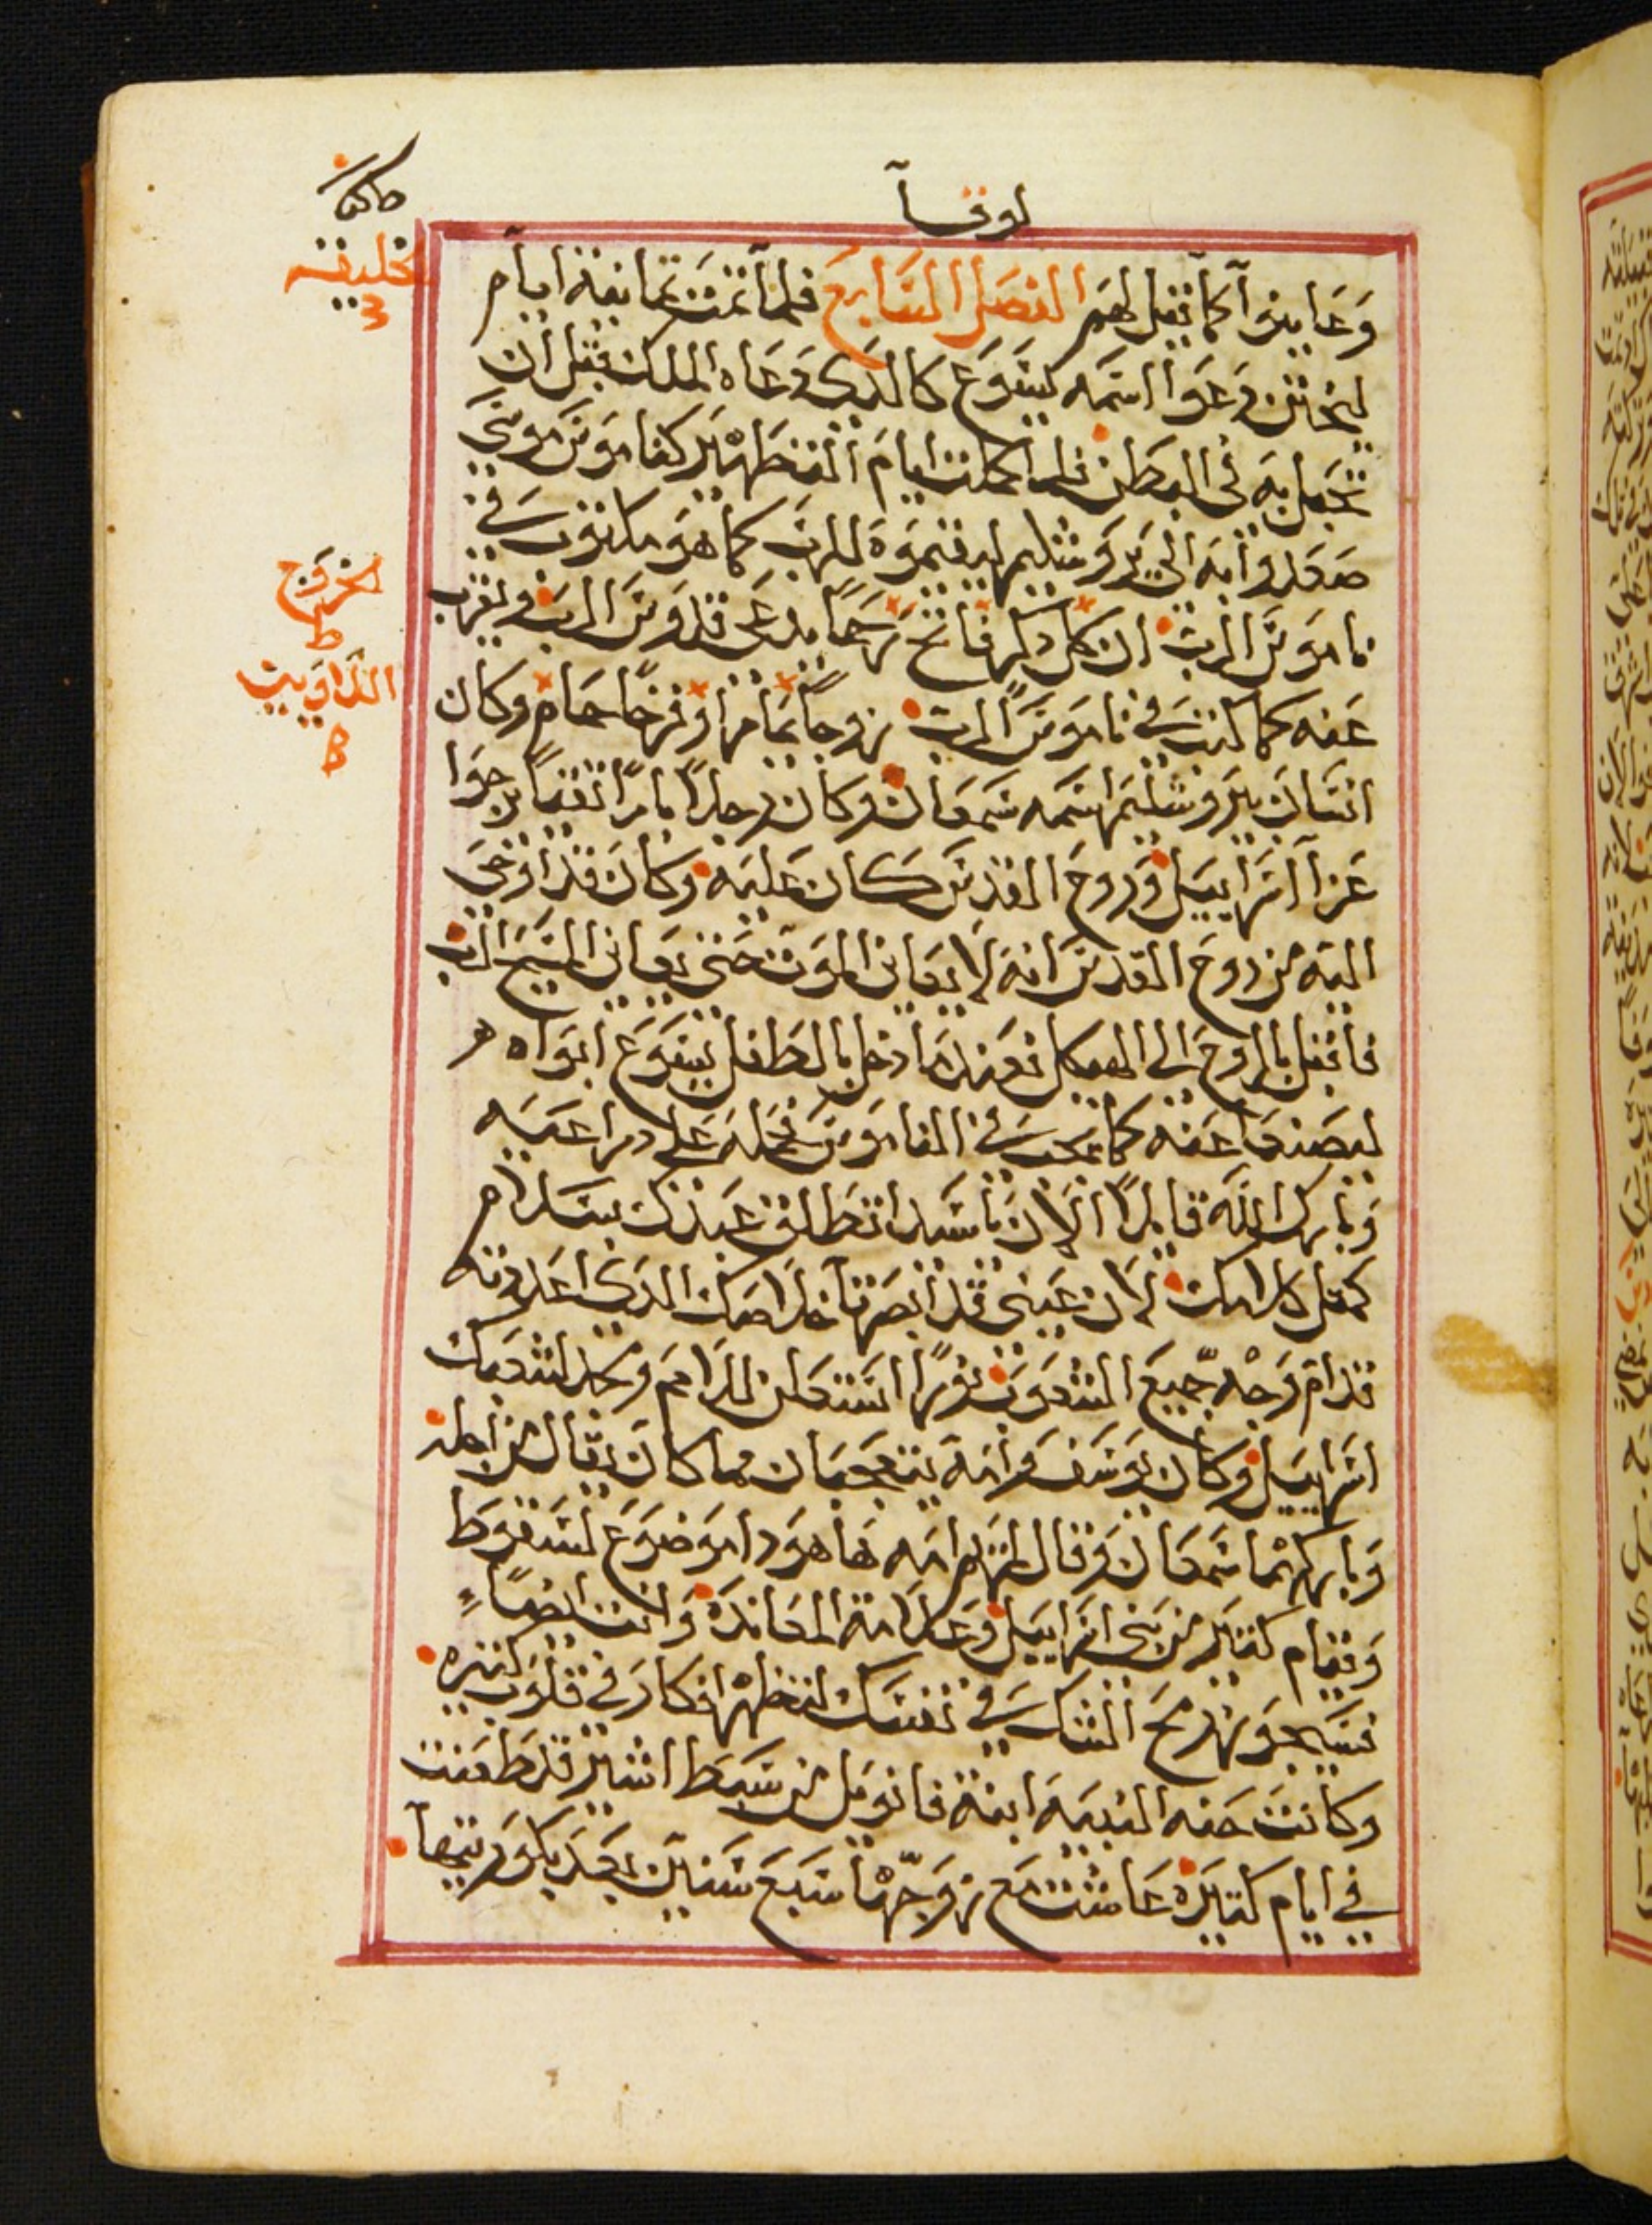 لوقا
وعاينوا كما قيل لهم الفصل السابع فلما تمت ثمانية ايام
ليختتن دعوا اسمه يسوع كالذي دعاه الملاك قبل ان
تحبل به في البطن فلما كملت ايام التطهير كناموس موسى
صعدوا به الى يروشليم ليقيموه للرب كما هو مكتوب في
ناموس الرب ان كل ذكر فاتح رحما يدعى قدوس الرب ويقرب
عنه كما كتب في ناموس الرب زوجا يمام او فرخا حمام وكان
انسان بيروشليم اسمه سمعان وكان رجلا بارا تقيا يرجوا
عزا اسراييل وروح القدس كان عليه وكان قد اوحى
اليه من روح القدس انه لا يعاين الموت حتى يعاين المسيح الرب
فاقبل بالروح الى الهيكل فعندما دخل بالطفل يسوع ابواه
ليصنعا عنه كما يجب في الناموس فحمله على دراعيه
وبارك الله قايلا الان يا سيد تطلق عبدك بسلام
كمثل كلامك لان عيني قد ابصرتا خلاصك الدي اعددته
قدام وجه جميع الشعوب نورا استعلن للامم ومجد لشعبك
اسراييل وكان يوسف وامه يتعجبان مما كان يقال من اجله
وباركهما سمعان وقال لمريم امه ها هودا موضوع لسقوط
وقيام كثير من بني اسراييل وعلامة المعاندة وانت ايضا
فسيجوز رمح الشك في نفسك لتظهر افكار في قلوب كثيره
وكانت حنه النبيه ابنة فانويل من سبط اشير قد طعنت
في ايام كثيره عاشت مع زوجها سبع سنين بعد بكوريتها
الخليقه
الخروج
ط
اللاويين